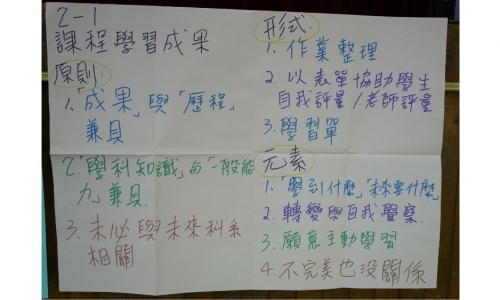 2-1
課程學習成果
原則:
1.「成果」與「歷程」
兼具
2.「學科知識」與「一般能
力」兼具.
3. 未必與未來科系
相關
形式:
1. 作業整理
2. 以表單協助學生
自我評量/老師評量
3. 學習單
元素
1.「學到什麼」「未來要什麼」
2. 轉變與自我覺察.
3. 願意主動學習
4. 不完美也沒關係